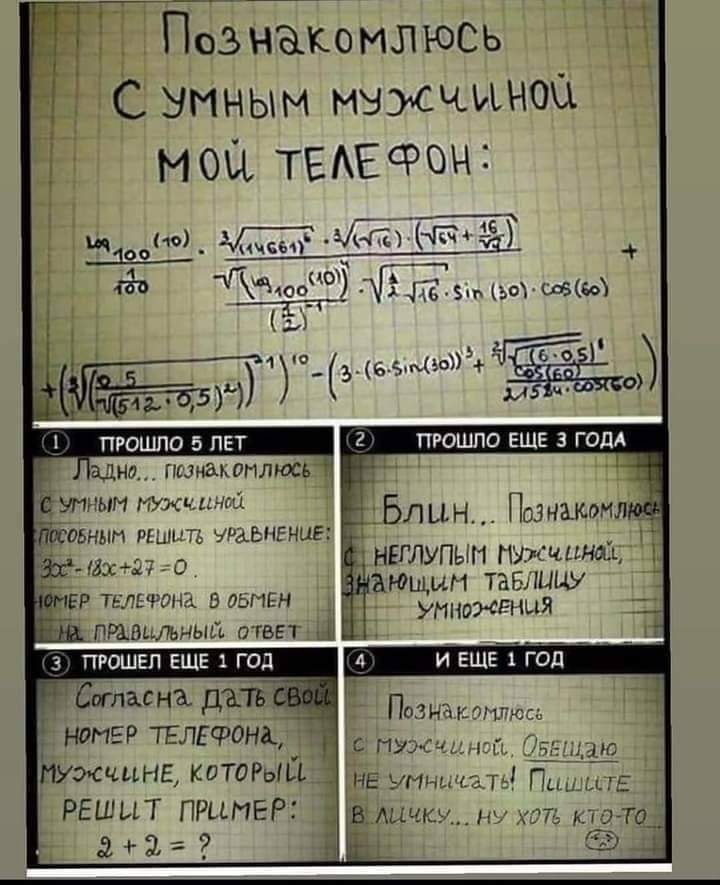 Познакомлюсь
с умным мужчиной
мой телефон:
log₁₀₀(10)
1/100
+
① ПРОШЛО 5 ЛЕТ
Ладно... познакомлюсь
с умным мужчиной
способным решить уравнение:
3x²-18x+27=0.
номер телефона в обмен
на правильный ответ
② ПРОШЛО ЕЩЕ 3 ГОДА
Блин... Познакомлюсь
с неглупым мужчиной,
знающим таблицу
умножения
③ ПРОШЕЛ ЕЩЕ 1 ГОД
Согласна дать свой
номер телефона,
мужчине, который
решит пример:
2+2=?
④ И ЕЩЕ 1 ГОД
Познакомлюсь
с мужчиной. Обещаю
не умничать! Пишите
в личку... ну хоть кто-то